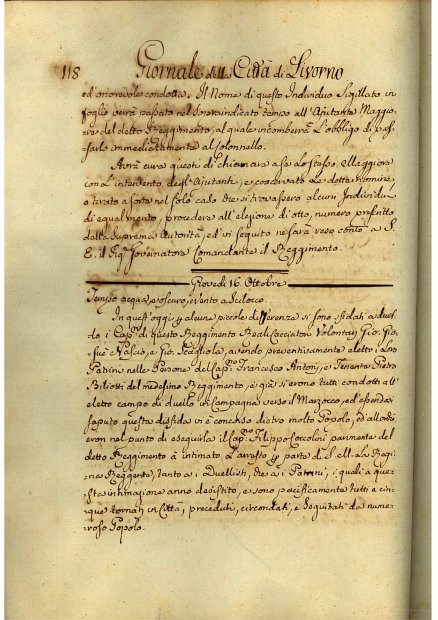 118 Giornale della Città di Livorno
ed onorevole condotta. Il Nome di questo Individuo Sigillato in
foglio verrà passato nel sovraindicato tempo all'Ajutante Maggio-
re del detto Reggimento, al quale incomberà l'obbligo di pas-
sarlo immediatamente al Colonnello.
Avrà cura questi di chiamare a se lo stesso Maggiore
con l'intervento degl'Ajutanti, e
o tirato a sorte nel solo caso che si trovassero alcuni Individui
di egual merito, procedere all'elezione di otto, numero prescritto
dalla Suprema Autorità, ed in seguito ne sarà reso conto a S.
E. il Sig. Governatore Comandante il Reggimento.
Giovedì 16. Ottobre
Tempo acqua, e oscuro, e vento a Scilocco.
In quest'oggi p alcune piccole differenze si sono sfidati a duel-
lo i Cap.ni di questo Reggimento Reali Cacciatori Volontarj Gio: Gio-
suè e Gio. Scagliola, avendo preventivamente eletto i Loro
Patrini nelle Persone del Cap.no Francesco Antonj, e Tenente Pietro
Biliotti del medesimo Reggimento, e già si erono tutti condotti all'
eletto campo di duello in Campagna verso il Marzocco, ed essendosi
saputo questa disfida vi è concorso dietro molto Popolo, ed allorchè
eron nel punto di eseguirla il Cap. Filippo Coccolini parimente del
detto Reggimento à intimato l'arresto p parte di S. M. La Regi-
na Reggente, tanto a i Duellisti, che a i Patrini, i quali a que-
sta intimazione anno desistito, e sono pacificamente tutti e cin-
que tornati in Città, preceduti, circondati, e seguitati da nume-
roso Popolo.